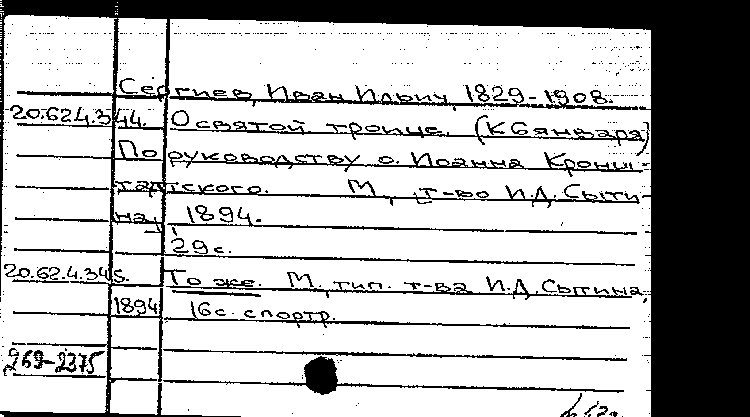 Сергиев, Иван Ильич, 1829-1908.
20.62.4.344. О святой троице. (К 6 января)
По руководству о. Иоанна Кронш-
тадтского. М., т-во И.Д. Сыти-
на, 1894.
29 с.
20.62.4.345. То же. М., тип. т-ва И.Д. Сытина,
1894 16 с. с портр.
269-2375